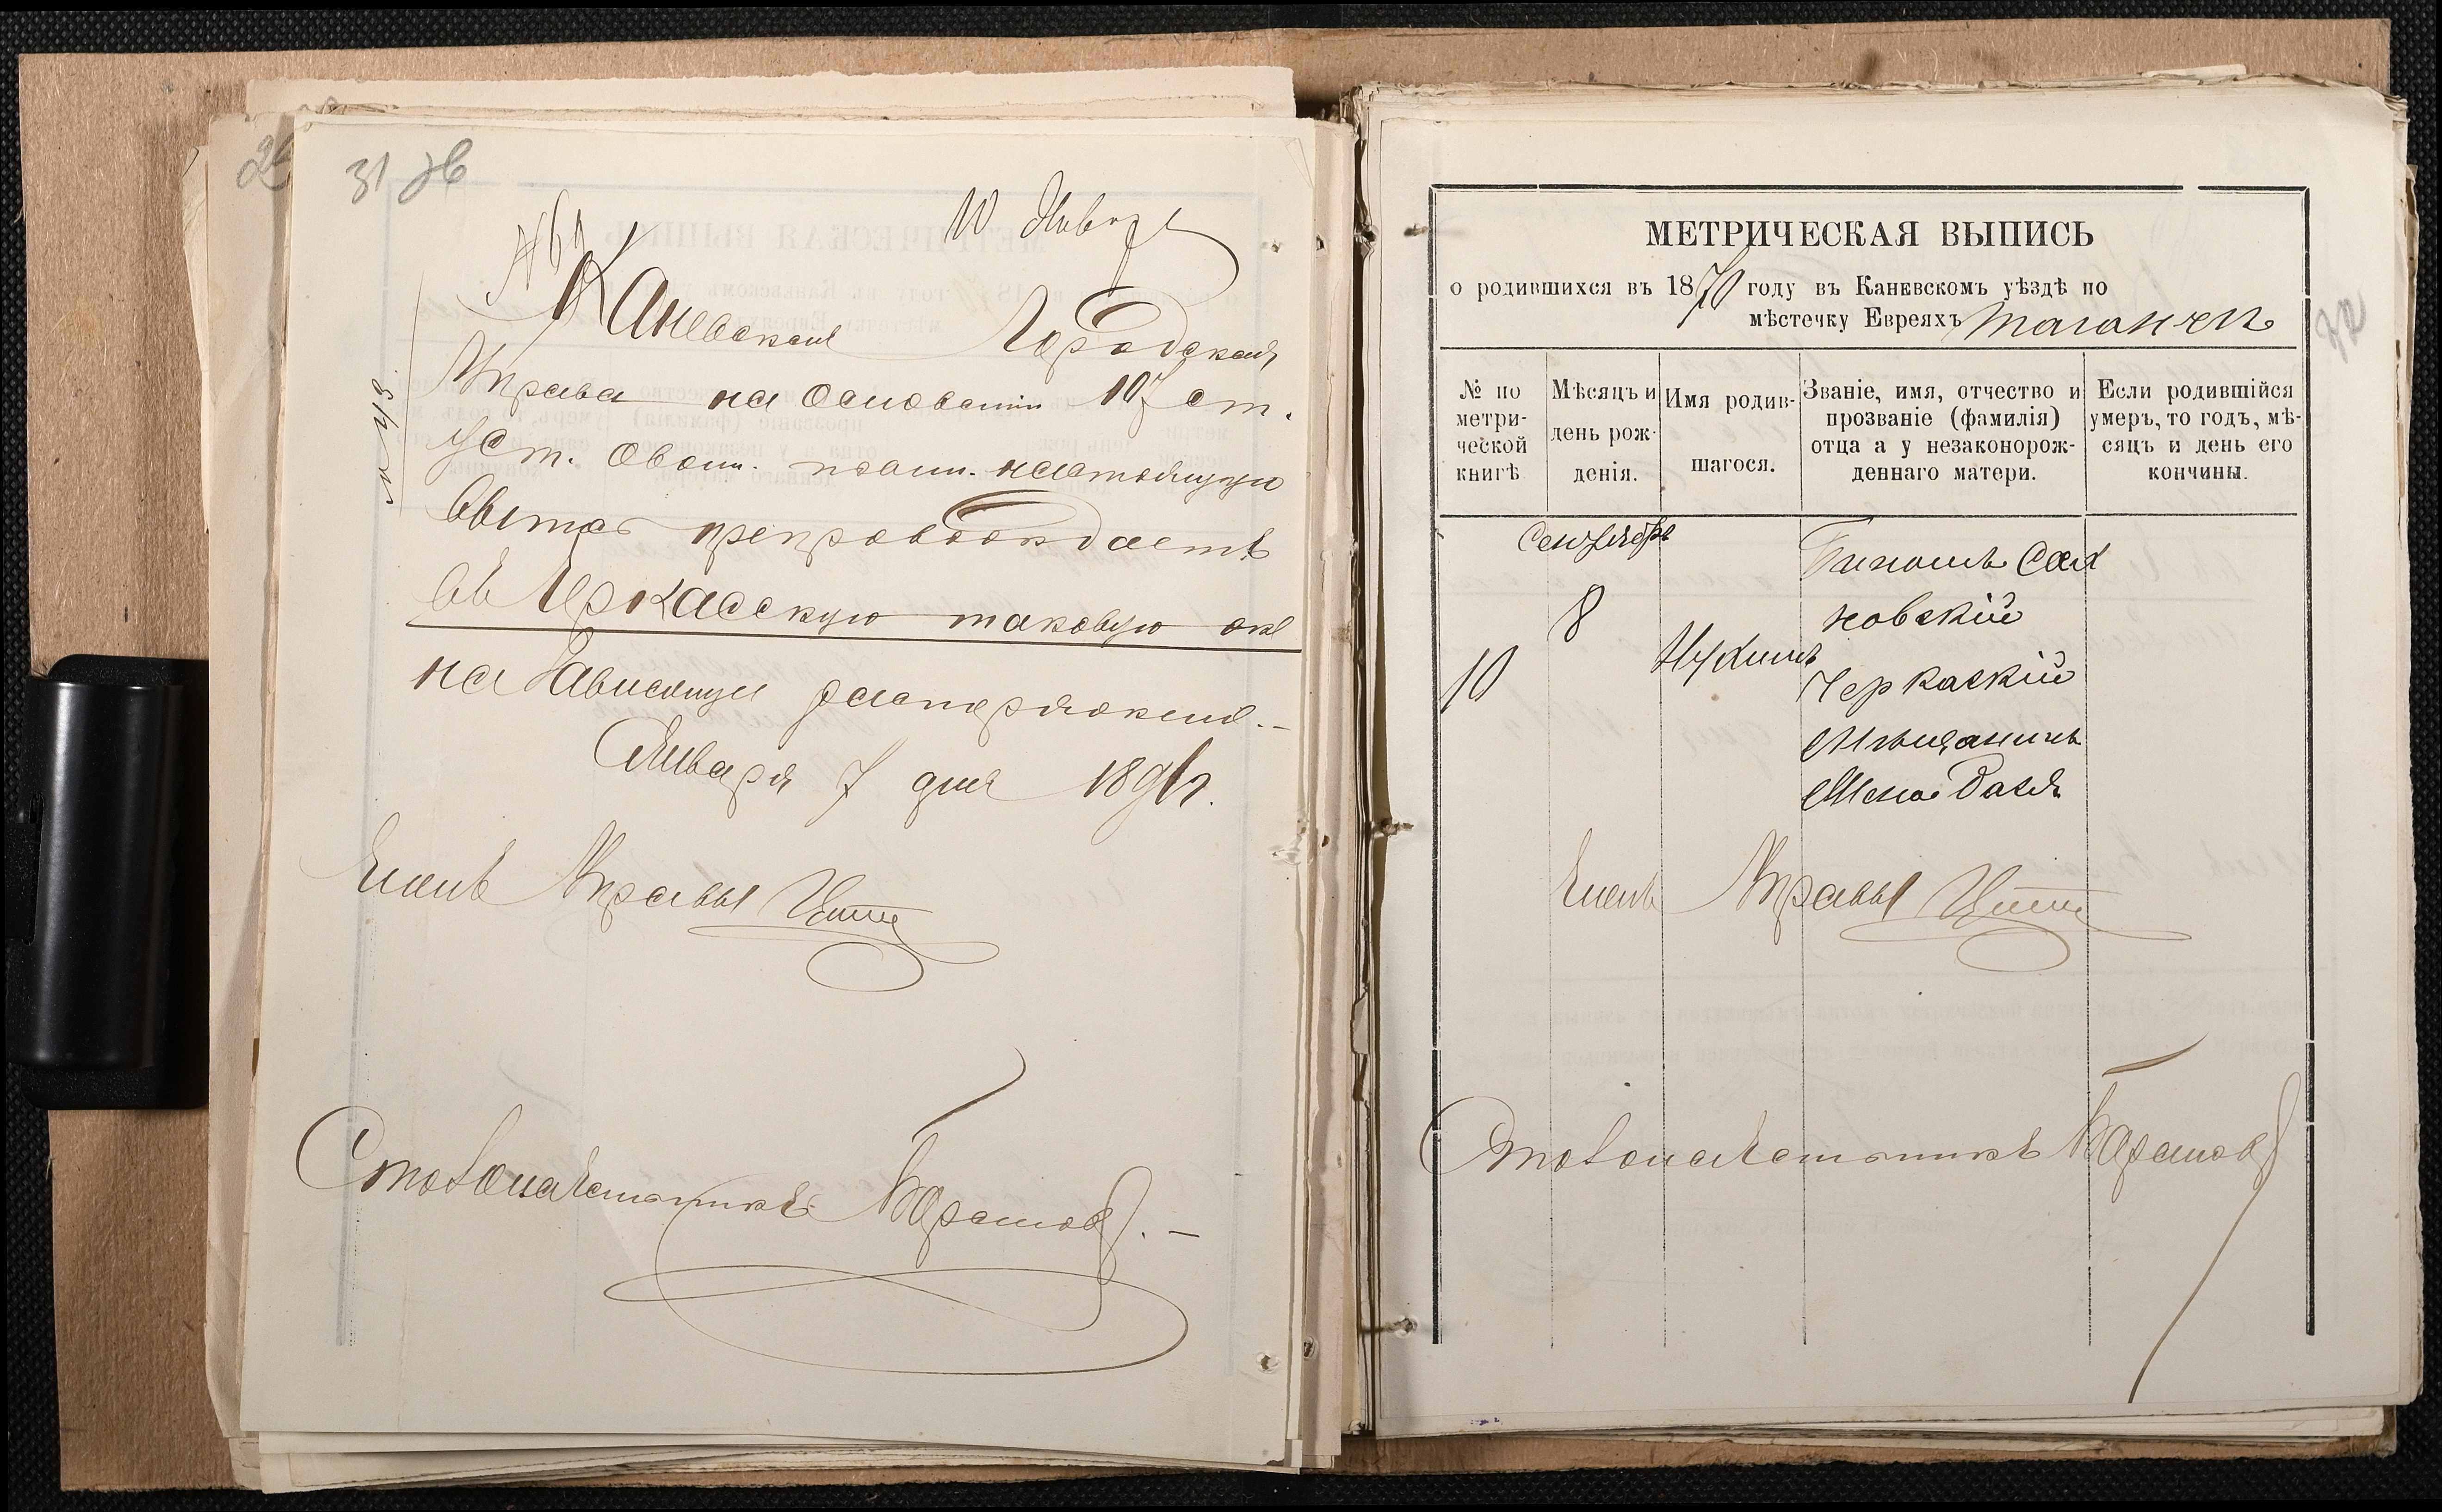 31 об
10 Января
Каневская Городская
Управа на основании 107 ст.
уст. о воин. повин. настоящую
препровождаетъ
въ Черкасскую таковую опе
на зависящее распоряженіе.-
Января 7 дня 1891 г.
Членъ Управы
Столоначальникъ
МЕТРИЧЕСКАЯ ВЫПИСЬ
о родившихся въ 1870 году въ Каневскомъ уѣздѣ по
мѣстечку Евреяхъ Таганчѣ
32
№ по метри-ческой книгѣ
Мѣсяцъ и день рож-денія.
Имя родив-шагося.
Званіе, имя, отчество и прозваніе (фамилія) отца а у незаконорож-деннаго матери.
Если родившійся умеръ, то годъ, мѣ-сяцъ и день его кончины.
Сентябрь
8
10
Нухимъ
Сах
новскій
Черкаскій
Мѣщанинъ
Жена
Членъ Управы
Столоначальникъ